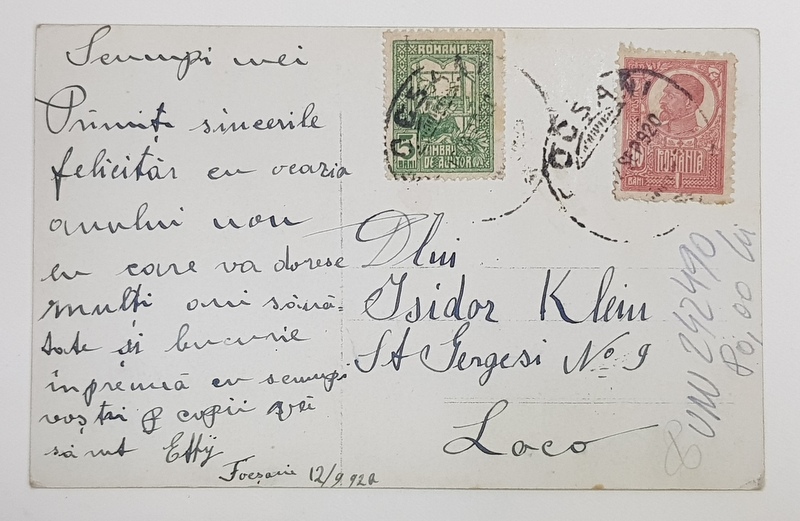 Scumpi mei
Primiți sincerile
felicităr cu ocazia
anului nou
cu care va doresc
mulți ani sănă-
tate și bucurie
împreună cu scumpi
voștri copii
sânt Effy
Focșani 12/9 920
ROMANIA
TIMBRU
DE AJUTOR
BANI
FOCSANI
ROMANIA
BANI 1
FOCSANI
SEP 920
Dlui
Isidor Klein
St Gergesi No 9
Loco
UNU 242490
80,00 lei